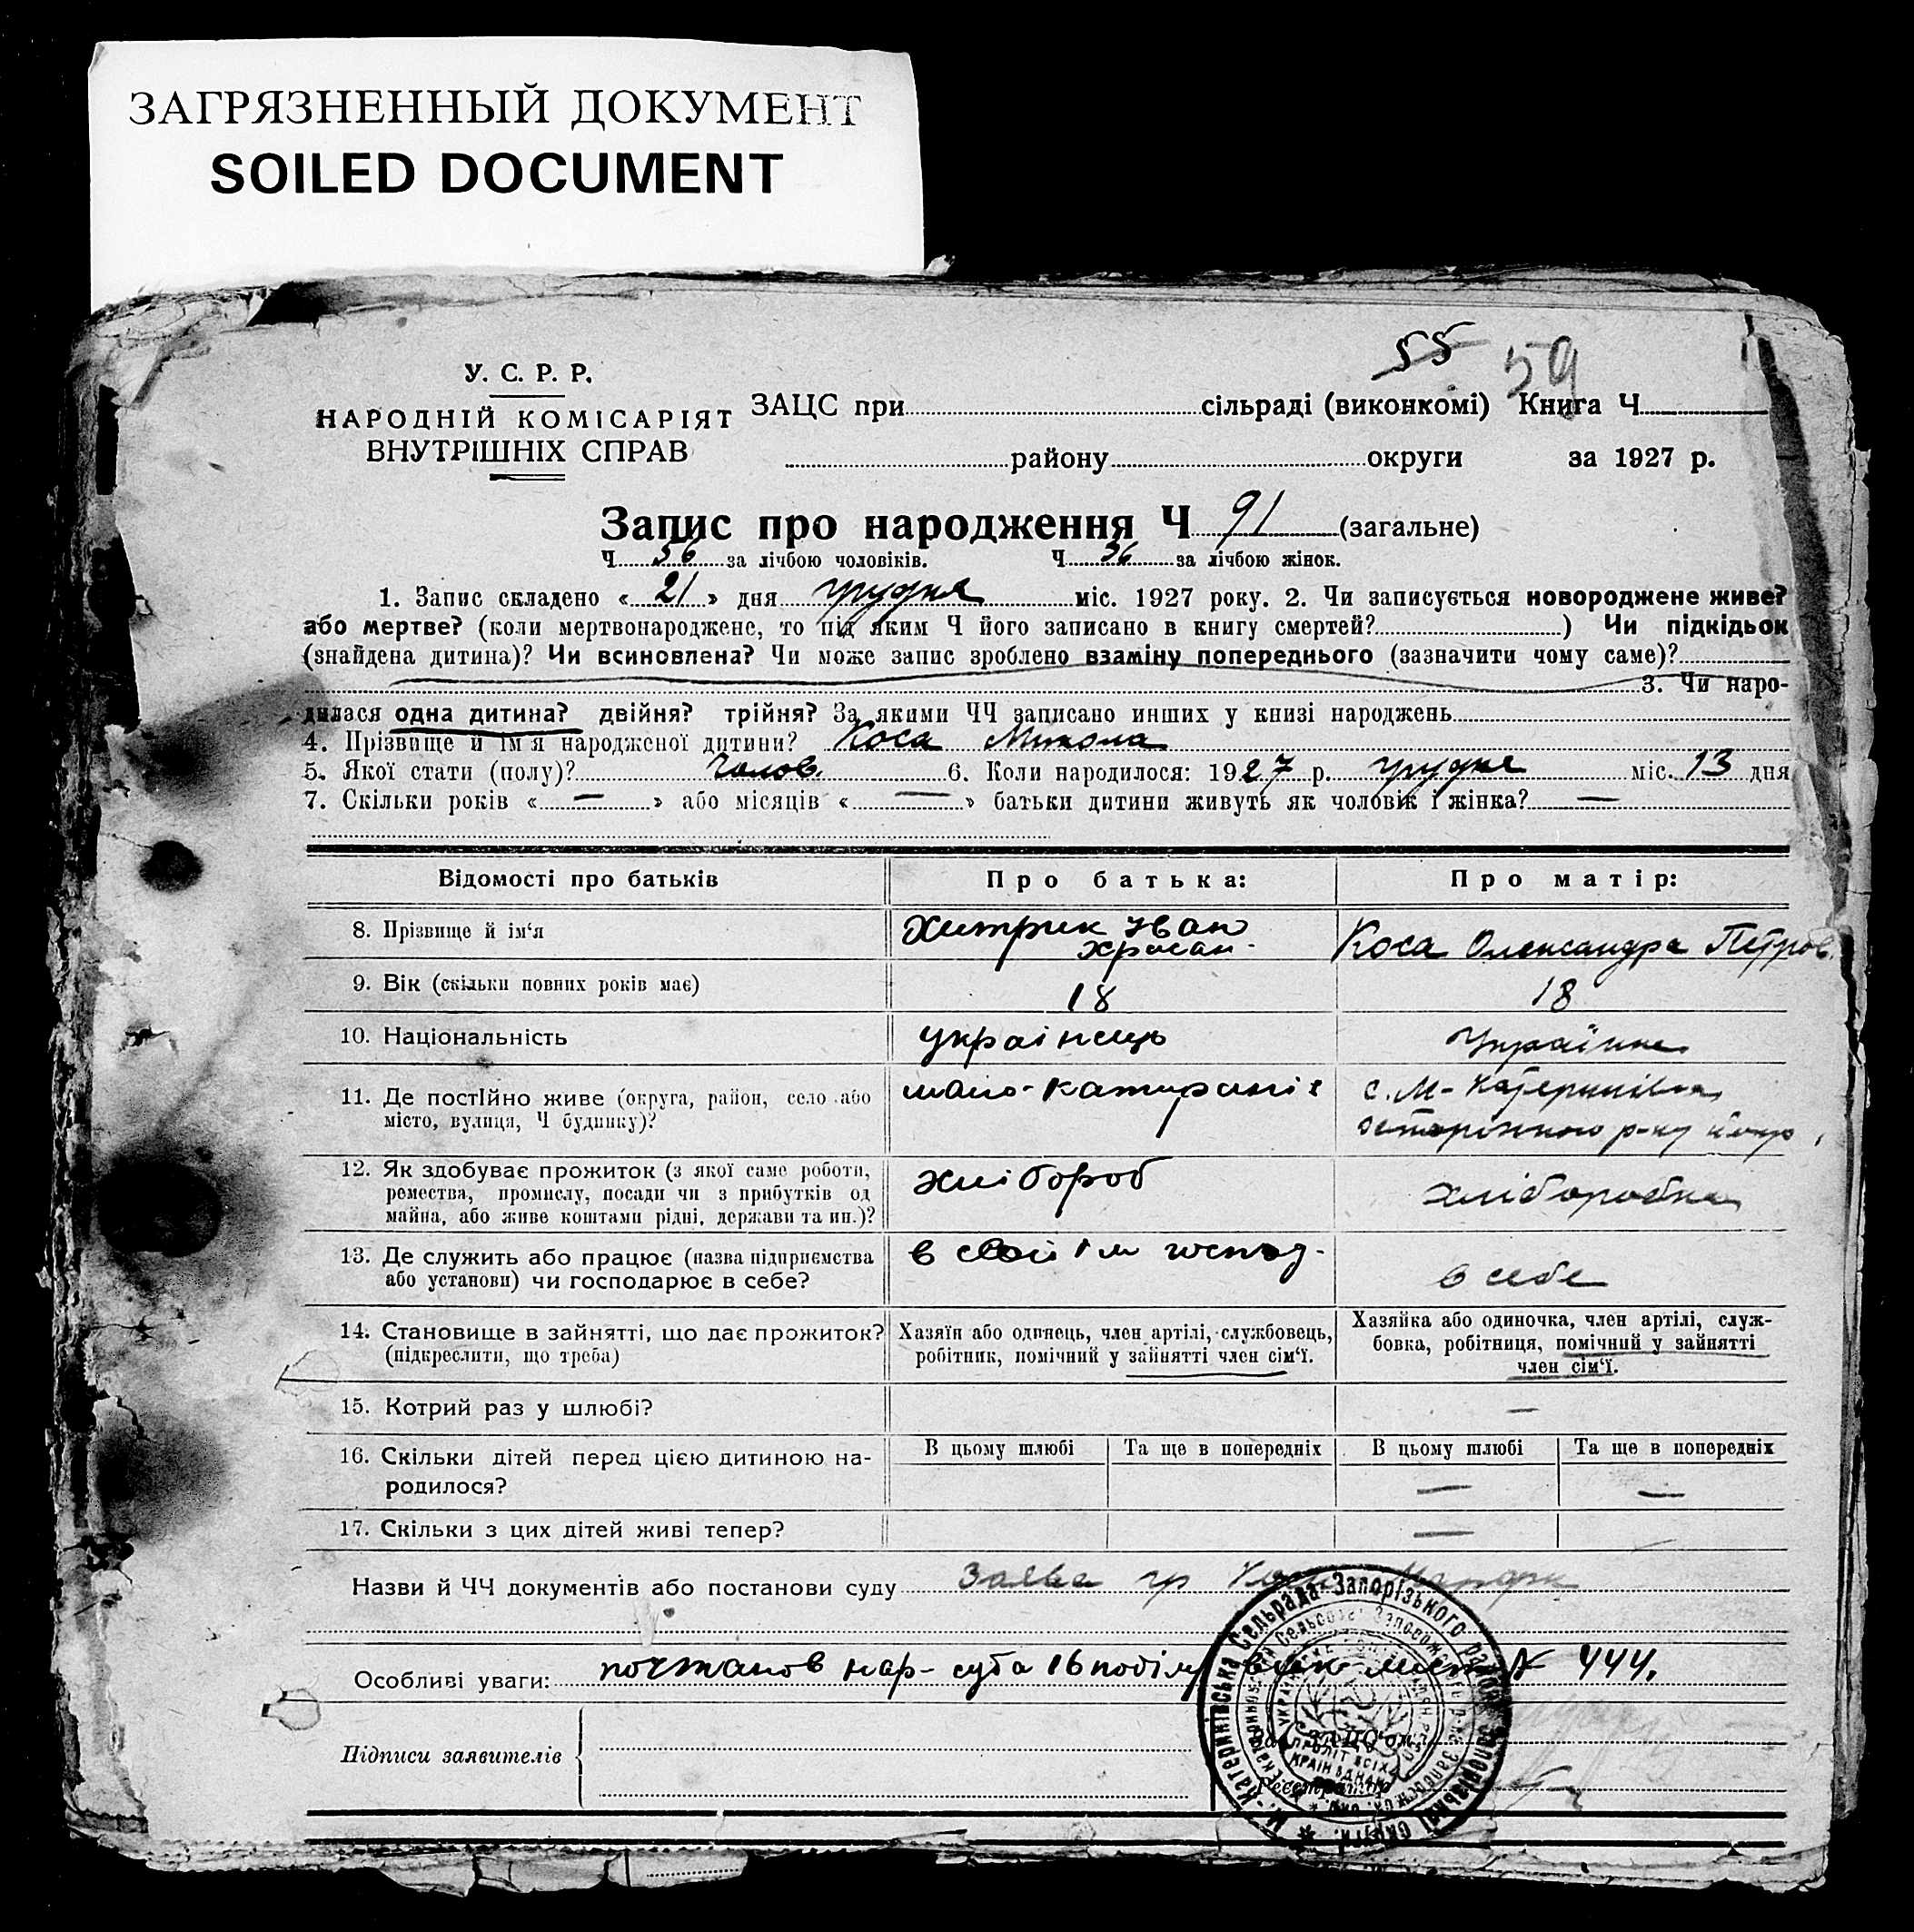 ЗАГРЯЗНЕННЫЙ ДОКУМЕНТ
SOILED DOCUMENT
55 59
У. С. Р. Р.
НАРОДНІЙ КОМІСАРІЯТ
ВНУТРІШНІХ СПРАВ
ЗАЦС при сільраді (виконкомі) Книга Ч
району округи за 1927 р.
Запис про народження Ч 91 (загальне)
Ч 56 за лічбою чоловіків. Ч 36 за лічбою жінок.
1. Запис складено « 21 » дня грудня міс. 1927 року. 2. Чи записується новороджене живе?
або мертве? (коли мертвонароджене, то під яким Ч його записано в книгу смертей? ) Чи підкідьок
(знайдена дитина)? Чи всиновлена? Чи може запис зроблено взаміну попереднього (зазначити чому саме)?
3. Чи наро-
дилася одна дитина? двійня? трійня? За якими ЧЧ записано инших у книзі народжень
4. Прізвище й ім'я народженої дитини? Коса Микола
5. Якої стати (полу)? чолов. 6. Коли народилося: 1927 р. грудня міс. 13 дня
7. Скільки років « — » або місяців « — » батьки дитини живуть як чоловік і жінка? —
Відомості про батьків Про батька: Про матір:
8. Прізвище й ім'я Хитрик Іван Коса Олександра Петров.
9. Вік (скільки повних років має) 18 18
10. Національність українець Українка
11. Де постІйно живе (округа, район, село або
місто, вулиця, Ч будинку)?
с. М-Катеринівка
12. Як здобуває прожиток (з якої саме роботи,
ремества, промислу, посади чи з прибутків од
майна, або живе коштами рідні, держави та ин.)?
хлібороб хліборобка
13. Де служить або працює (назва підприємства
або установи) чи господарює в себе?
в своїм господ. в себе
14. Становище в зайнятті, що дає прожиток?
(підкреслити, що треба)
Хазяїн або одинець, член артілі, службовець,
робітник, помічний у зайнятті член сім'ї.
Хазяйка або одиночка, член артілі, служ-
бовка, робітниця, помічний у зайнятті
член сім'ї.
15. Котрий раз у шлюбі? —
16. Скільки дітей перед цією дитиною на-
родилося?
В цьому шлюбі Та ще в попередніх В цьому шлюбі Та ще в попередніх
— —
17. Скільки з цих дітей живі тепер? —
Назви й ЧЧ документів або постанови суду Заява гр Коса
Особливі уваги: нар- суда 16 444.
Підписи заявителів
М.-Катериківська Сельрада Запорізького району Запорізької округи